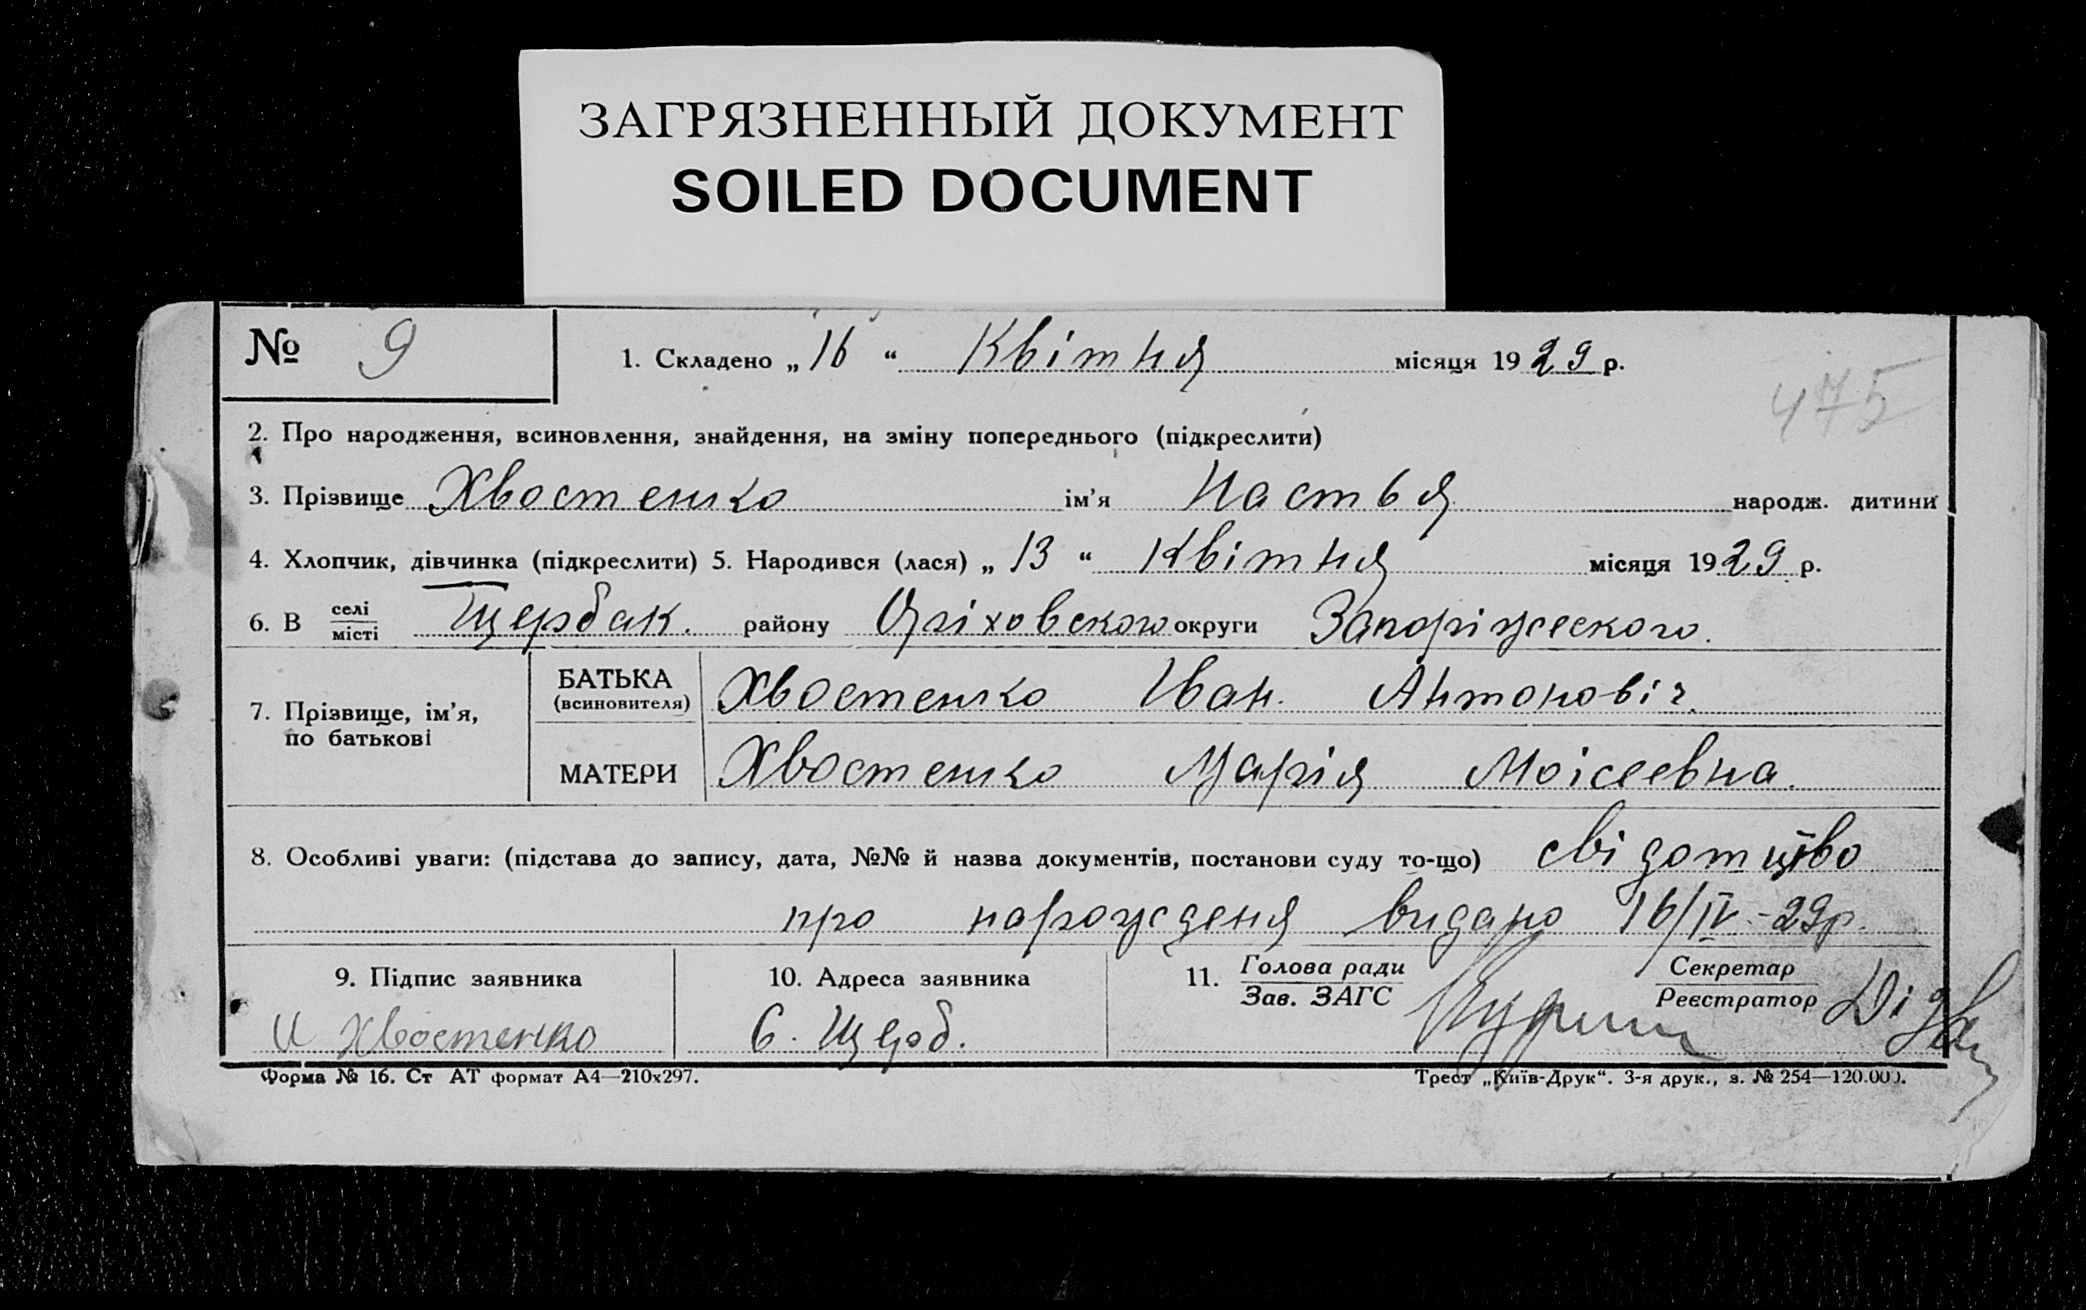 ЗАГРЯЗНЕННЫЙ ДОКУМЕНТ
SOILED DOCUMENT
№ 9
1. Складено „16“ Квітня місяця 1929 р.
475
2. Про народження, всиновлення, знайдення, на зміну попереднього (підкреслити)
3. Прізвище Хвостенко ім’я Настья народж. дитини
4. Хлопчик, дівчинка (підкреслити) 5. Народився (лася) „13“ Квітня місяця 1929 р.
6. В селі/місті Щербак. району Оріховского округи Запоріжеского.
7. Прізвище, ім’я, по батькові
БАТЬКА (всиновителя) Хвостенко Іван. Антоновіч.
МАТЕРИ Хвостенко Марія Моісеевна.
8. Особливі уваги: (підстава до запису, дата, №№ й назва документів, постанови суду то-що) свідотцтво
про нарожденя видано 16/IV-29р.
9. Підпис заявника 10. Адреса заявника 11. Голова ради/Зав. ЗАГС Секретар/Реєстратор
И Хвостенко С. Щерб.
Форма № 16. Ст АТ формат А4—210х297. Трест „Київ-Друк“. 3-я друк., з. № 254—120.000.